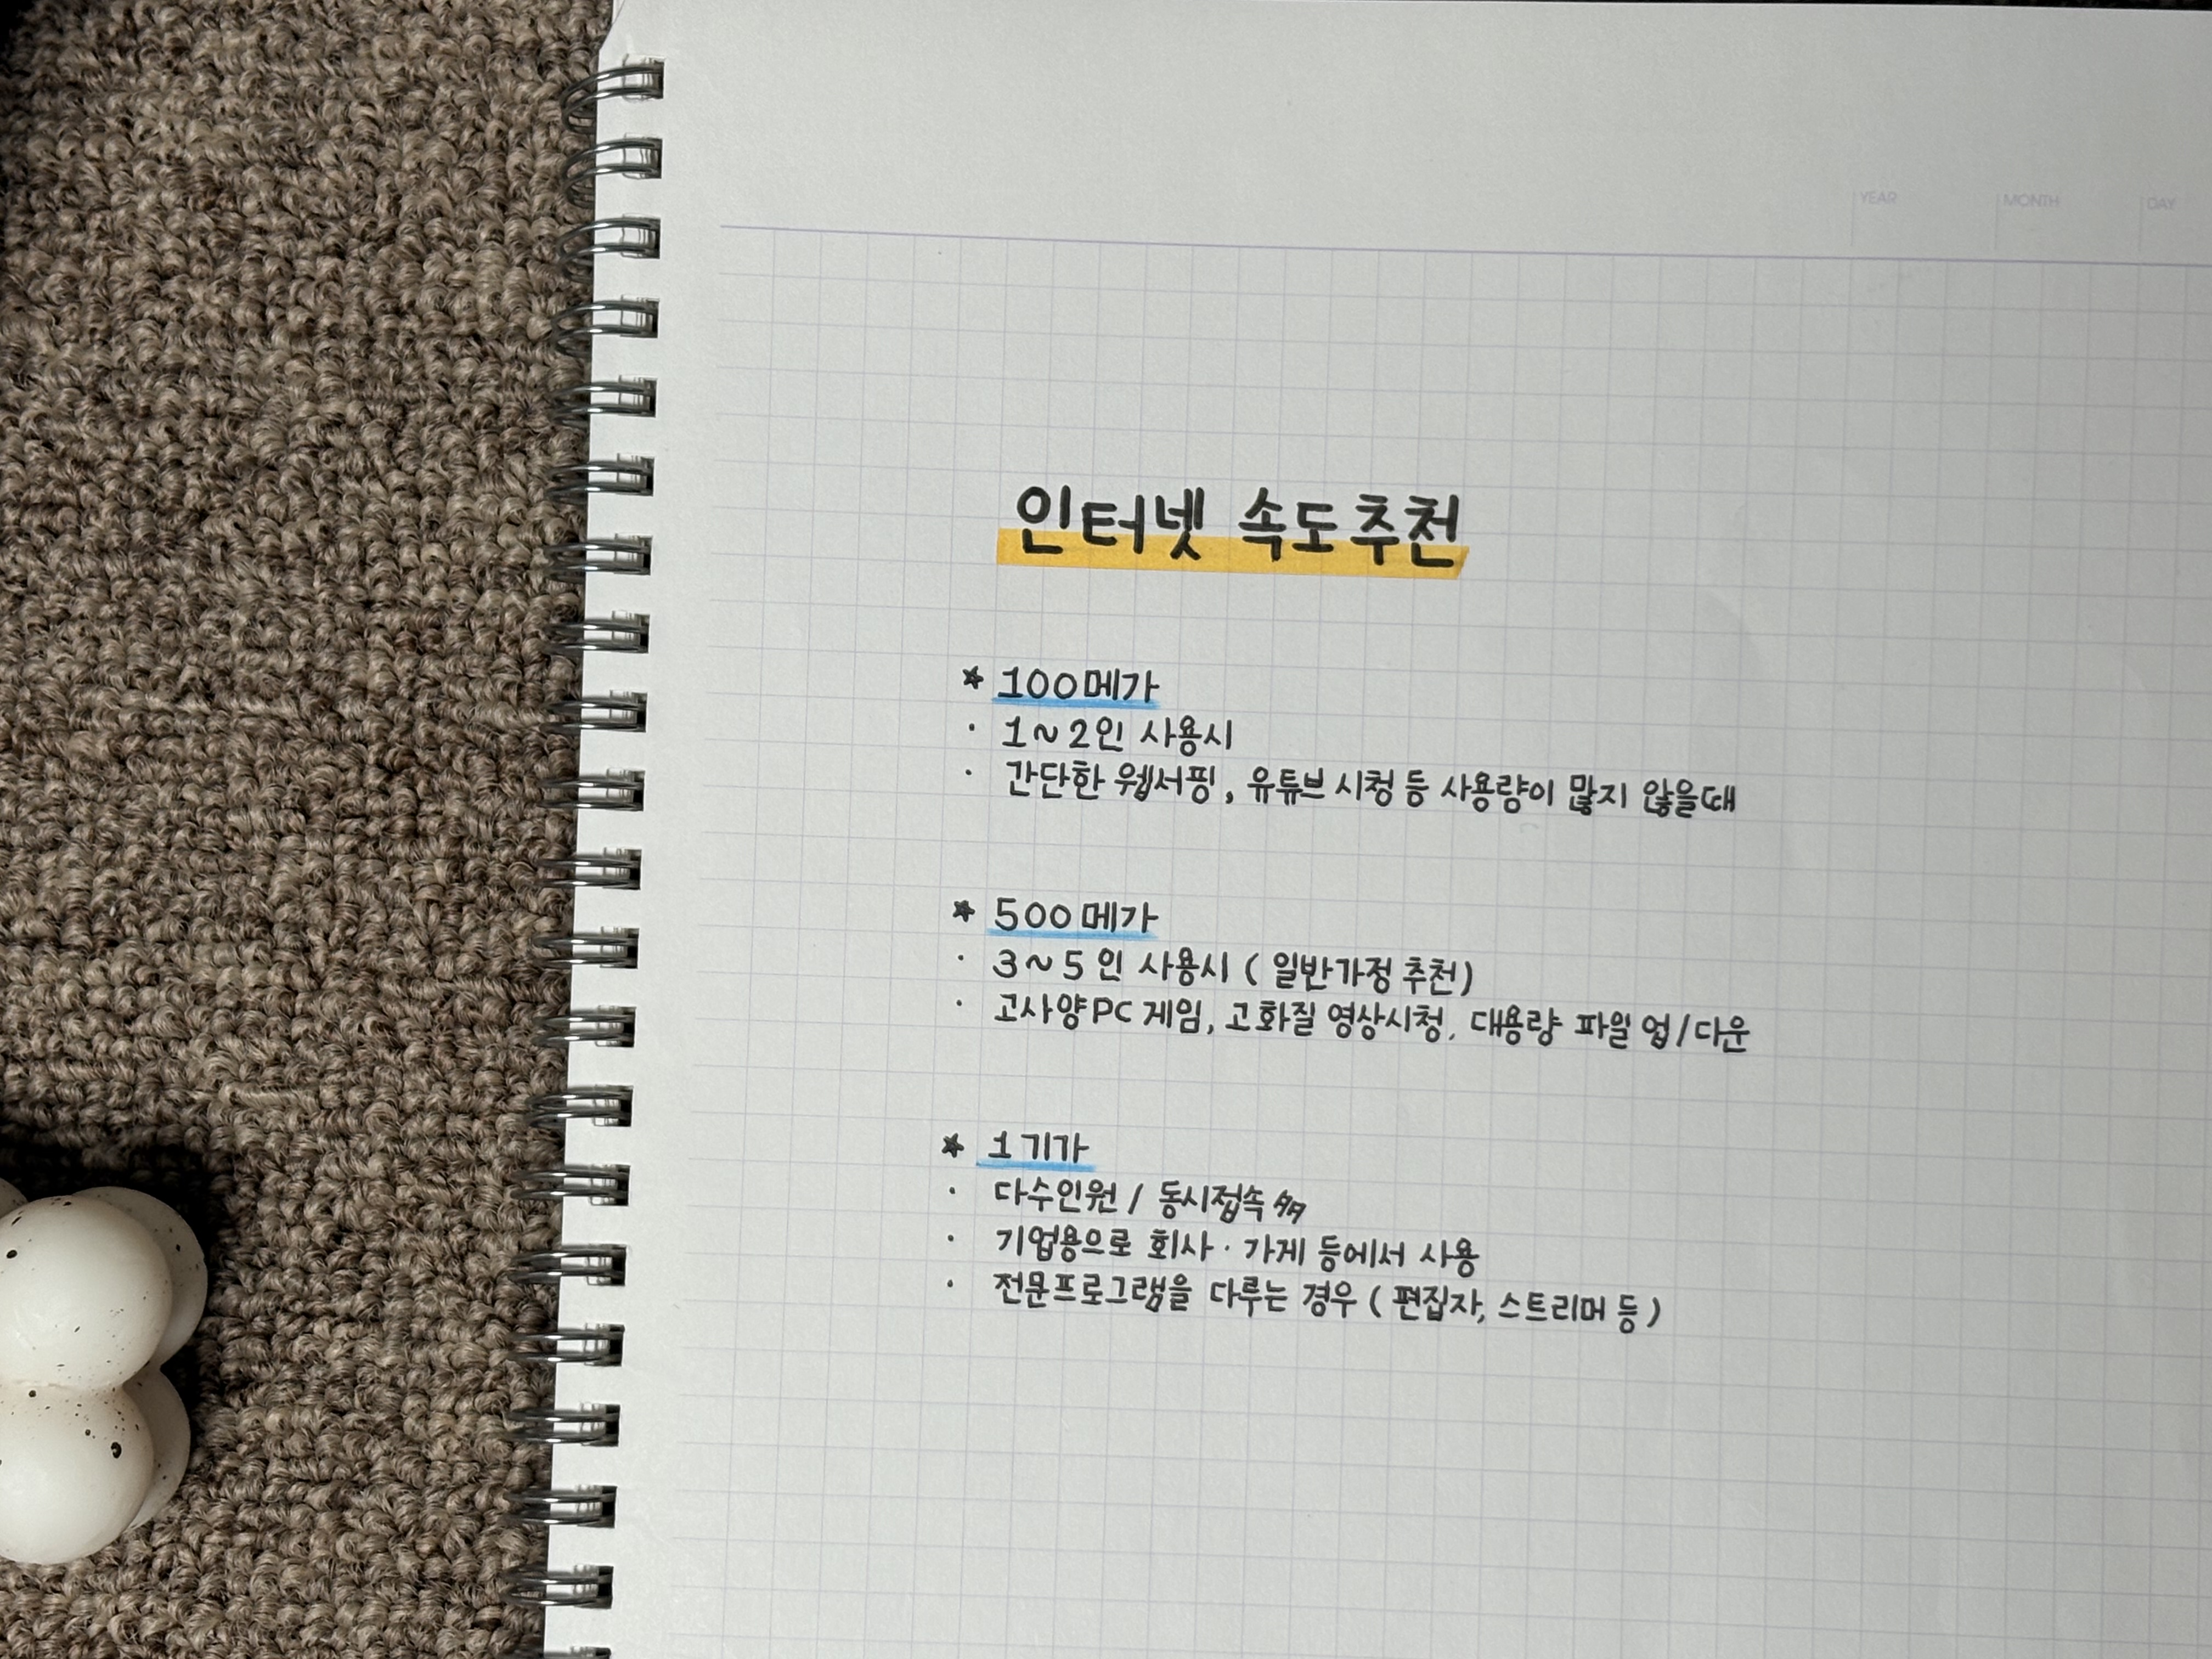 YEAR MONTH DAY
인터넷 속도추천
★ 100메가
· 1~2인 사용시
· 간단한 웹서핑, 유튜브 시청 등 사용량이 많지 않을때
★ 500메가
· 3~5인 사용시 (일반가정 추천)
· 고사양PC게임, 고화질 영상시청, 대용량 파일 업/다운
★ 1기가
· 다수인원 / 동시접속 多
· 기업용으로 회사·가게 등에서 사용
· 전문프로그램을 다루는 경우 (편집자, 스트리머 등)